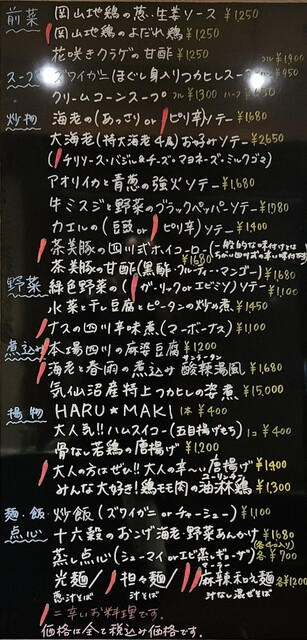 前菜 岡山地鶏の葱、生姜ソース ¥1250
岡山地鶏のよだれ鶏 ¥1250
花咲きクラゲの甘酢 ¥1250
スープ ズワイガニほぐし身入りフカヒレスープ フル¥1900 ハーフ¥950
クリームコーンスープ フル¥1300 ハーフ
炒物 海老の(あっさり or ピリ辛)ソテー ¥1680
大海老(特大海老4本)お好みソテー ¥2650
(チリソース・バジル&チーズ・マヨネーズ・ミックゴマ)
アオリイカと青葱の強火ソテー ¥1,680
牛ミスジと野菜のブラックペッパーソテー ¥1980
カエルの(豆豉 or ピリ辛)ソテー ¥1,900
茶美豚の四川式ホイコーロー ¥1680 (一般的な味付けとは
ちがい四川式の辛い味付です)
茶美豚の甘酢(黒酢・フルーティー・マンゴー) ¥1680
野菜 緑色野菜の(ガーリック or エビミソ)ソテー ¥1,100
水菜と干し豆腐とピータンの炒め煮 ¥1450
ナスの四川辛味煮(マーボーナス) ¥1,100
煮込み 本場四川の麻婆豆腐 ¥1200
海老と春雨の煮込み 酸辣湯風 サンラータン ¥1,680
気仙沼産特上フカヒレの姿煮 ¥15,000
揚物 HARU★MAKI 1本 ¥400
大人気!!ハムスイコー(五目揚げもち) 1コ ¥400
骨なし若鶏の唐揚げ ¥1200
大人の方はぜひ!!大人の辛〜い唐揚げ ¥1400
みんな大好き!鶏モモ肉の油淋鶏 ユーリンチー ¥1,300
麺・飯 炒飯(ズワイガニ or チャーシュー) ¥1,100
点心 十六穀のおこげ海老・野菜あんかけ ¥1680
蒸し点心(シューマイ or エビ蒸しギョーザ) (各4コ入り) 各¥700
光麺/担々麺/麻辣まぜ麺 各¥1200
葱汁そば 汁そば 汁なし混ぜそば
=辛いお料理です。
価格は全て税込み価格です。